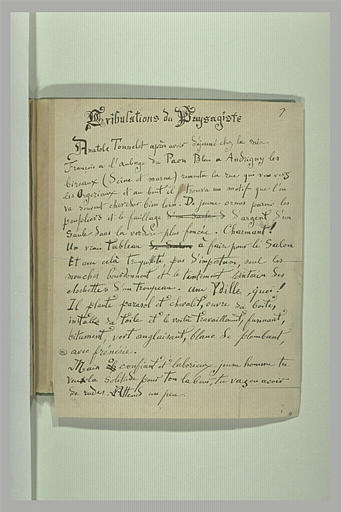 7
Tribulations du Paysagiste
Anatole Tonnelot après avoir déjeuné chez la mère
François à l'auberge du Paon Bleu à Andrigny les
bizeaux (Seine et marne) remonta la rue qui va vers
les Orgeriaux et au bout il trouva un motif que l'on
va souvent chercher bien loin. De jeunes ormes parmi les
peupliers et le feuillage d'argent d'un
saule dans la verdure plus foncée. Charmant!
Un vrai tableau à faire pour le Salon
Et avec cela tranquille, pas d'importuns, seul les
mouches bourdonnent et le tintement lointain des
clochettes d'un troupeau. une Idille, quoi!
Il plante parasol et chevalet, ouvre sa boîte,
installe sa toile et le voilà travaillant, fusinant,
bitumant, vert anglaisant, blanc de plombant,
avec frénésie.
Mais confiant et laborieux jeune homme tu
veux la solitude pour ton labeur, tu vas en avoir
de rudes. Attends un peu